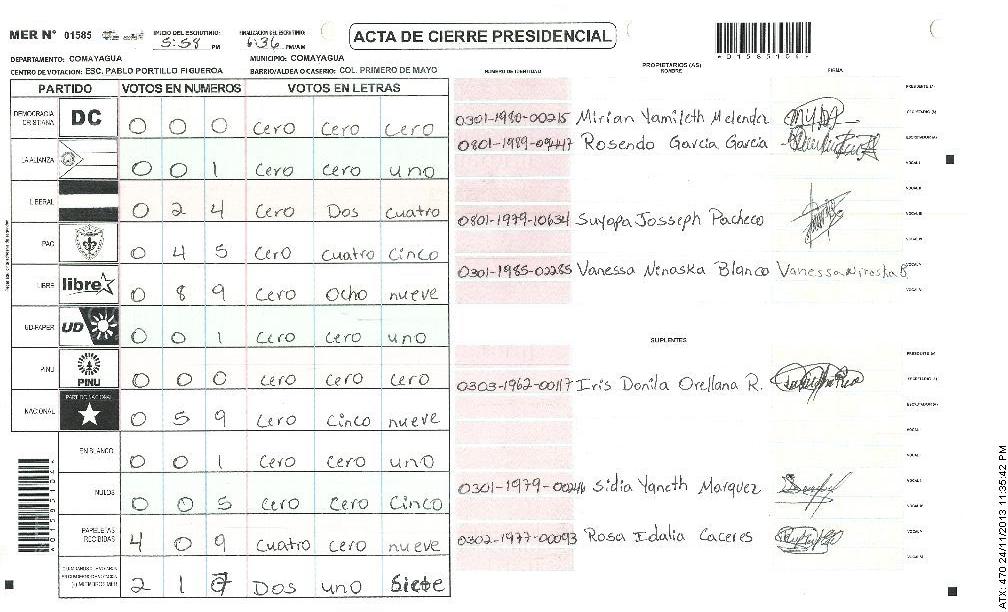 MER N° 01585
INICIO DEL ESCRUTINIO: 5:58 PM
FINALIZACION DEL ESCRUTINIO: 6:36 PM/AM
ACTA DE CIERRE PRESIDENCIAL
DEPARTAMENTO: COMAYAGUA MUNICIPIO: COMAYAGUA
CENTRO DE VOTACION: ESC. PABLO PORTILLO FIGUEROA BARRIO/ALDEA O CASERIO: COL. PRIMERO DE MAYO
PARTIDO VOTOS EN NUMEROS VOTOS EN LETRAS
DEMOCRACIA CRISTIANA DC 0 0 0 Cero Cero Cero
LA ALIANZA 0 0 1 Cero Cero uno
LIBERAL 0 2 4 Cero Dos Cuatro
PAC 0 4 5 Cero Cuatro Cinco
LIBRE libre 0 8 9 Cero Ocho nueve
UD-FAPER UD 0 0 1 Cero Cero uno
PINU PINU 0 0 0 Cero Cero Cero
NACIONAL PARTIDO NACIONAL 0 5 9 Cero Cinco nueve
EN BLANCO 0 0 1 Cero Cero uno
NULOS 0 0 5 Cero Cero Cinco
PAPELETAS RECIBIDAS 4 0 9 Cuatro Cero nueve
2 1 7 Dos uno Siete
NUMERO DE IDENTIDAD
PROPIETARIOS (AS)
NOMBRE
FIRMA
0301-1980-00215 Mirian Yamileth Melendez
0801-1989-09447 Rosendo García García
0801-1979-10634 Suyapa Josseph Pacheco
0301-1985-02285 Vanessa Ninoska Blanco Vanessa Ninoska B
SUPLENTES
0303-1962-00117 Iris Donila Orellana R.
0301-1979-00246 Sidia Yaneth Marquez
0302-1977-00093 Rosa Idalia Caceres
ATX: 470 24/11/2013 11:35:42 PM